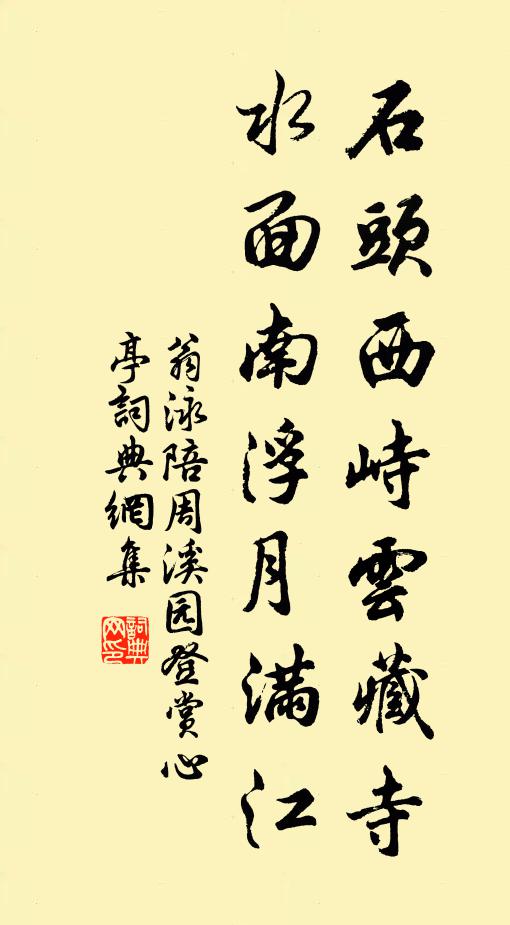 石頭西峙雲藏寺
水面南浮月滿江
翁泳陪周溪园登赏心
亭詞典網集
詞典
网印